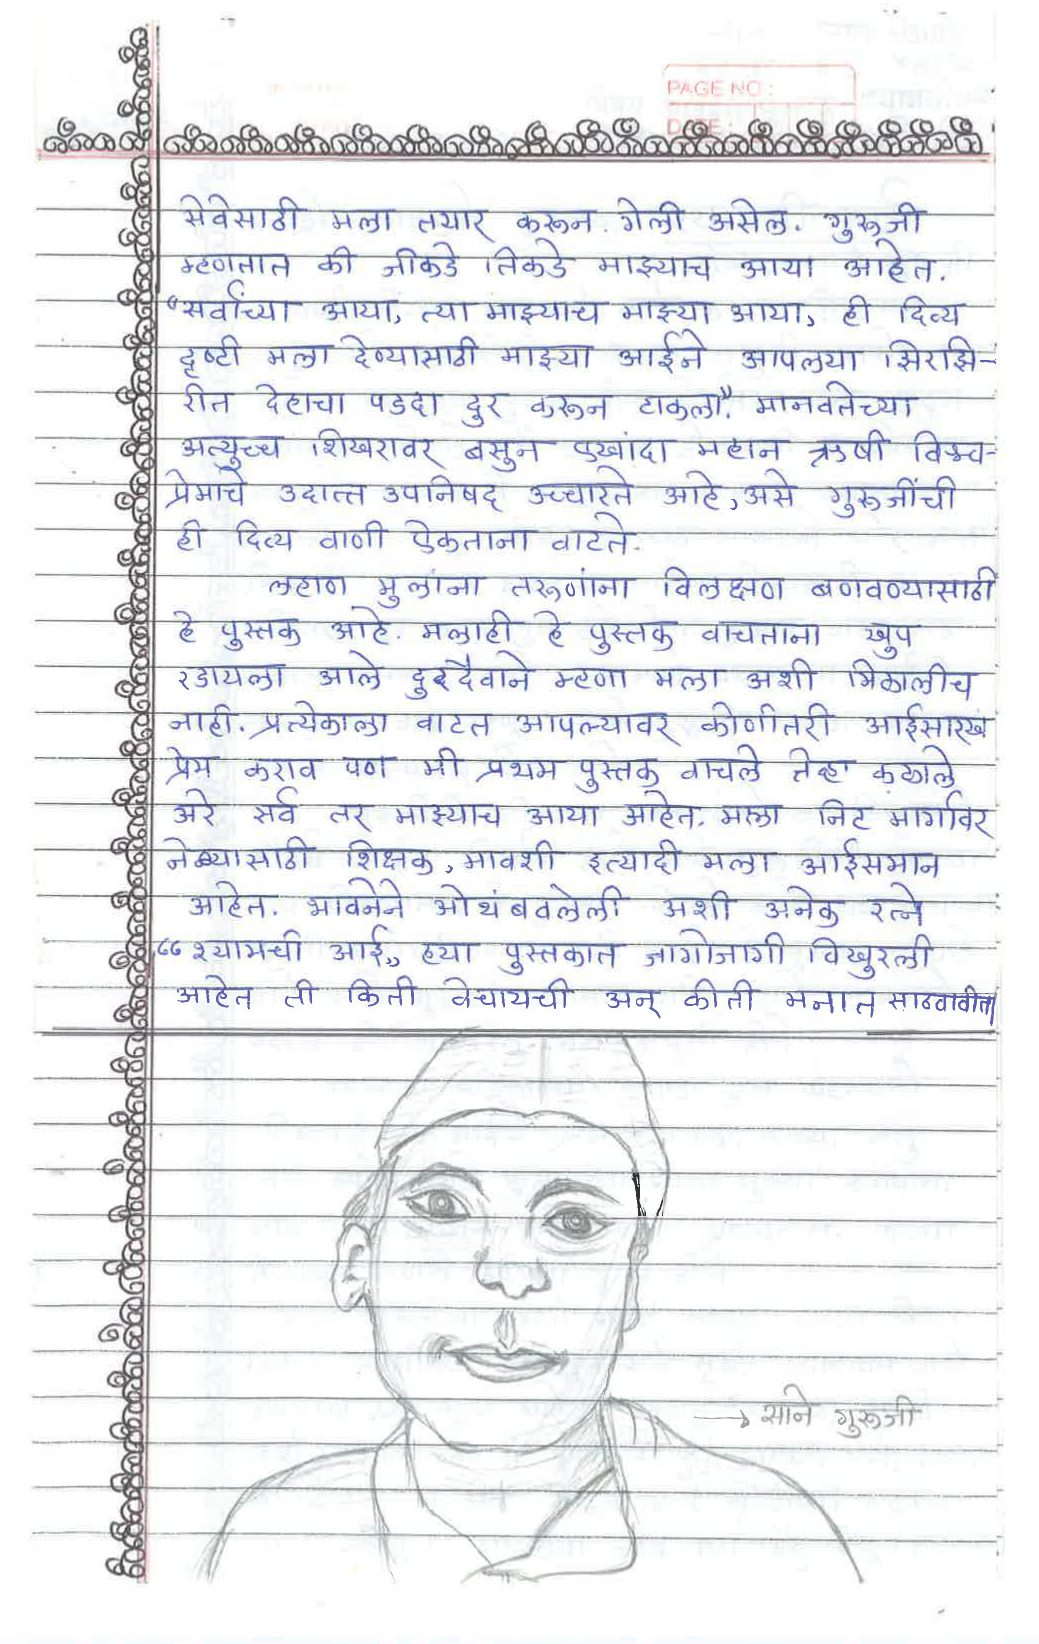 PAGE NO :
DATE :
सेवेसाठी मला तयार करून गेली असेल. गुरूजी
म्हणतात की जीकडे तिकडे माझ्याच आया आहेत.
"सर्वांच्या आया, त्या माझ्याच माझ्या आया, ही दिव्य
दृष्टी मला देण्यासाठी माझ्या आईने आपलया झिरझि-
रीत देहाचा पडदा दुर करून टाकला". मानवतेच्या
अत्युच्च शिखरावर बसुन एखांदा महान ऋषी विश्व-
प्रेमाचे उदात्त उपनिषद् उच्चारते आहे, असे गुरूजींची
ही दिव्य वाणी ऐकताना वाटते.
लहाण मुलांना तरूणांना विलक्षण बणवण्यासाठी
हे पुस्तक आहे. मलाही हे पुस्तक वाचताना खुप
रडायला आले दुरदैवाने म्हणा मला अशी मिळालीच
नाही. प्रत्येकाला वाटत आपल्यावर कोणीतरी आईसारख
प्रेम कराव पण मी प्रथम पुस्तक वाचले तेव्हा कळाले
अरे सर्व तर माझ्याच आया आहेत. मला निट मार्गावर
नेण्यासाठी शिक्षक, मावशी इत्यादी मला आईसमान
आहेत. भावनेने ओथंबवलेली अशी अनेक रत्ने
"श्यामची आई" ह्या पुस्तकात जागोजागी विखुरली
आहेत ती किती वेचायची अन् कीती मनात साठवावीत
→ साने गुरूजी